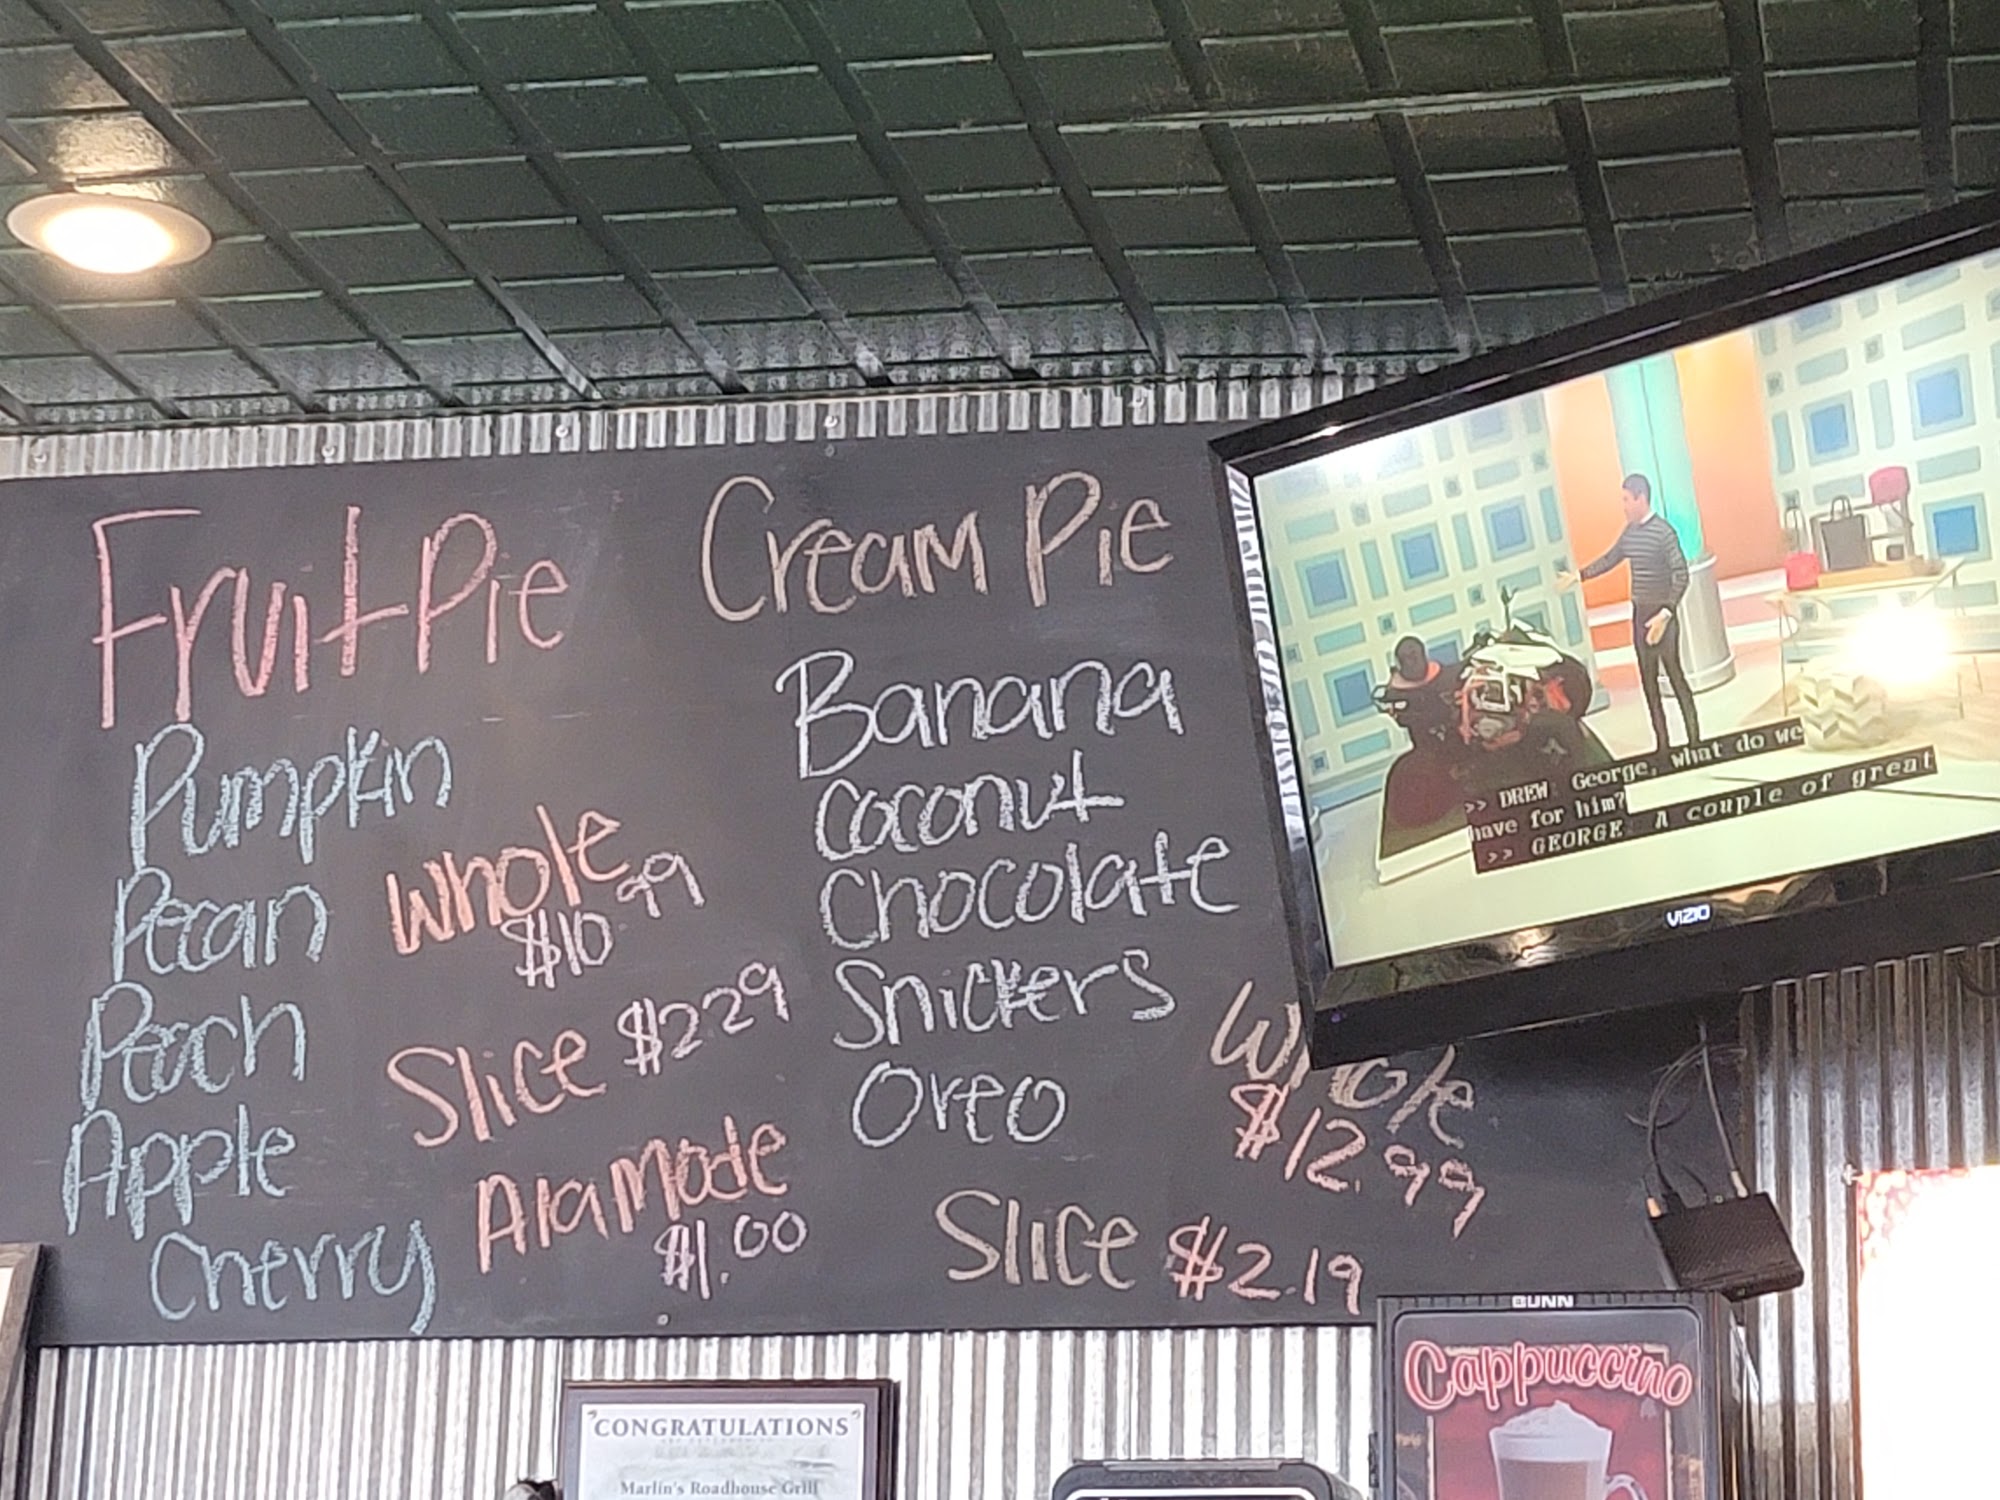 Fruit Pie
Pumpkin
Pecan
Peach
Apple
Cherry
Whole
$10.99
Slice $2.29
Alamode
$1.00
Cream Pie
Banana
Coconut
Chocolate
Snickers
Oreo
Whole
$12.99
Slice $2.19
>> DREW: George, what do we
have for him?
>> GEORGE: A couple of great
VIZIO
BUNN
Cappuccino
CONGRATULATIONS
Marlin's Roadhouse Grill